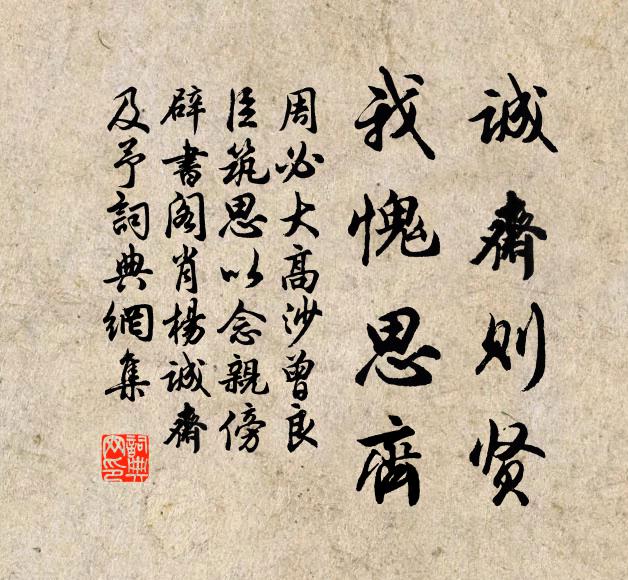 诚斋则贤
我愧思齐
周必大高沙曾良
臣筑思以念亲傍
辟书阁肖杨诚斋
及予词典网集
词典网印